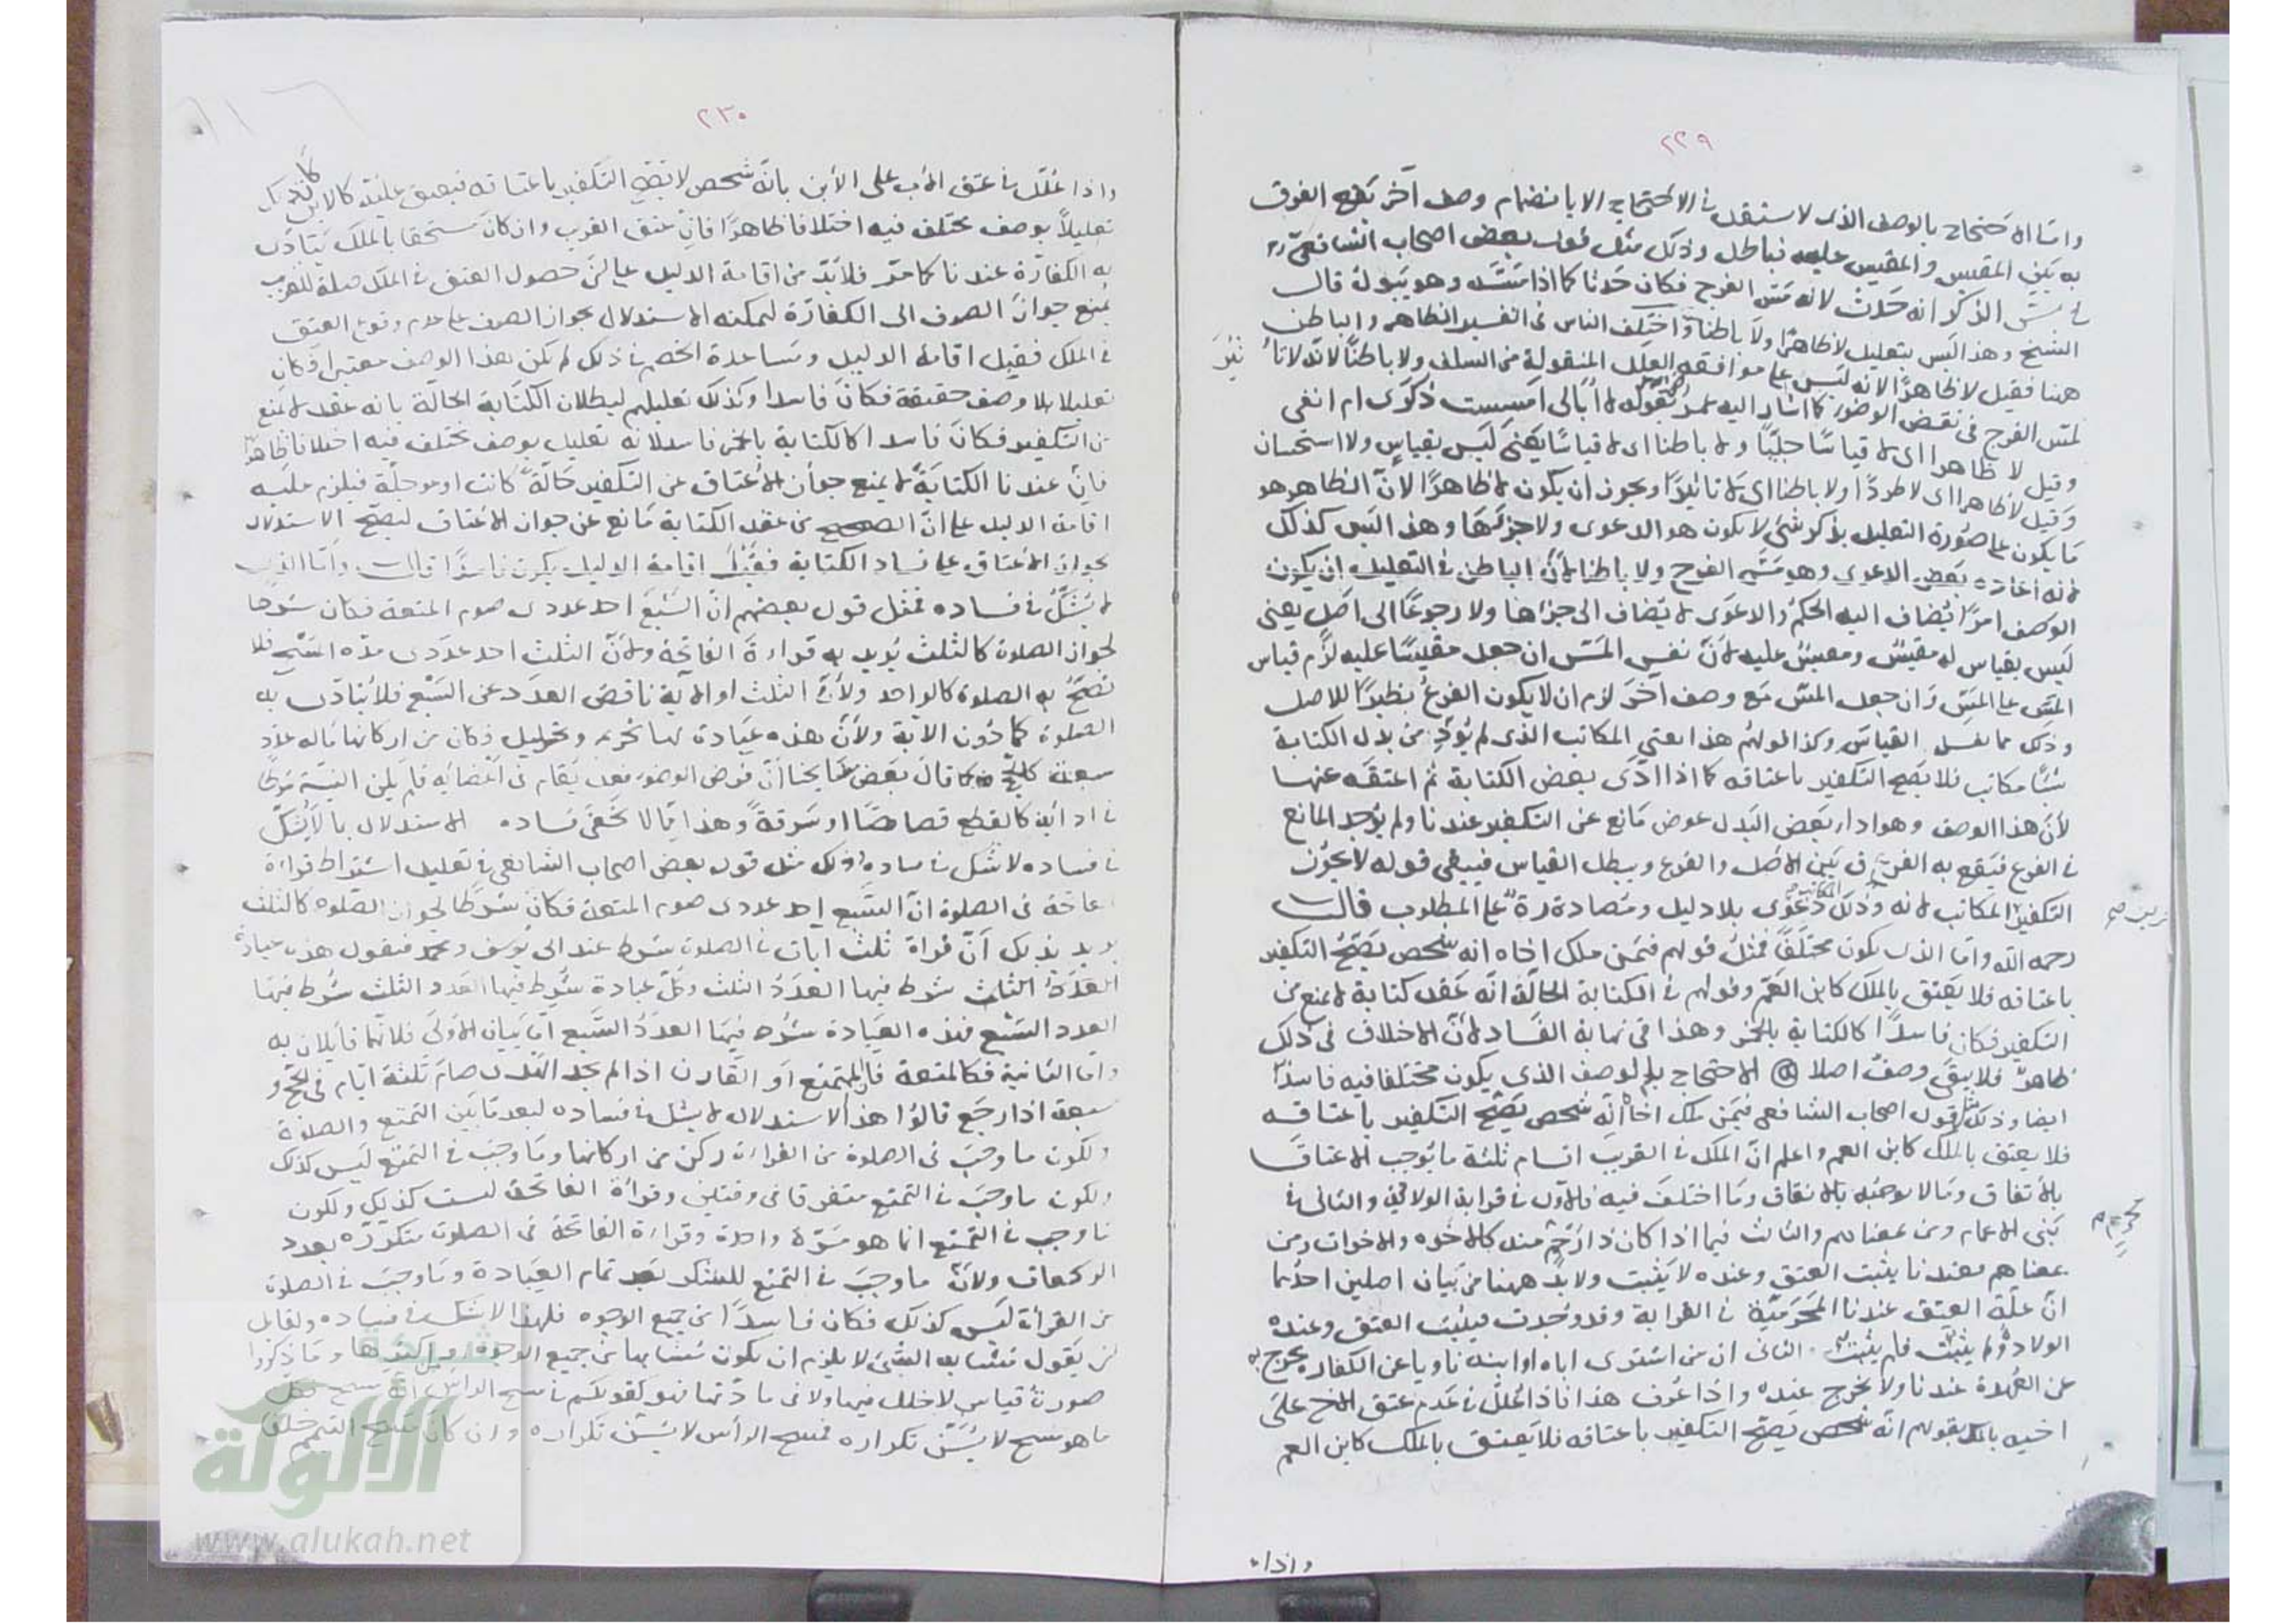 ٢٢٩
واما الاحتجاج بالوصف الذى لا يستقل فى الاحتجاج الا بانضمام وصف آخر يقع الفرق
به بين المقيس والمقيس عليه فباطل وذلك مثل قول بعض اصحاب الشافعى
فى مسّ الذكر انه حدث لانه مسّ الفرج فكان حدثا كما اذا مسّه وهو يبول قال
الشيخ وهذا ليس بتعليل لا ظاهرا ولا باطنا واختلف الناس فى تفسير الظاهر والباطن
ههنا فقيل لا ظاهرًا لانه ليس على موافقة العلل المنقولة من السلف ولا باطنًا لانه لا
لمس الفرج فى نقض الوضوء كما اشار اليه بقوله لا ابالى امسست ذكرى ام انفى
وقيل لا ظاهرا اى لا قياسًا جليًّا ولا باطنا اى لا قياسًا يعنى ليس بقياس ولا استحسان
وقيل لا ظاهرا اى لا طردًا ولا باطنا اى لا تاثيرًا ويجوز ان يكون لا ظاهرًا لان الظاهر هو
ما يكون على صورة التعليل بذكر شئ لا يكون هو الدعوى ولا جزئها وهذا ليس كذلك
لانه اعاده بعض الدعوى وهو مسّ الفرج ولا باطنا لانّ الباطن فى التعليل ان يكون
الوصف امرًا يُضاف اليه الحكم والدعوى لا يُضاف الى جزئها ولا رجوعًا الى اصل يعنى
ليس بقياس له مقيس ومقيس عليه لانّ نفس المسّ ان جعل مقيسًا عليه لزم قياس
المسّ على المسّ وان جعل المسّ مع وصف آخر لزم ان لا يكون الفرع نظيرًا للاصل
وذلك مما يفسد القياس وكذا قولهم هذا يعنى المكاتب الذى لم يُؤدِّ من بدل الكتابة
شيئا مكاتب فلا يصح التكفير باعتاقه كما اذا ادّى بعض الكتابة ثم اعتقه عنها
لانّ هذا الوصف وهو اداء بعض البدل عوض مانع عن التكفير عندنا ولم يوجد المانع
فى الفرع فيقع به الفرق بين الاصل والفرع ويبطل القياس فيبقى قوله لا يجوز
التكفير المكاتب لانه وذلك دعوى بلا دليل ومصادرة على المطلوب قال
رحمه الله واما الذى يكون مختلفًا فمثل قولهم فيمن ملك اخاه انه شخص يصحّ التكفير
باعتاقه فلا يعتق بالملك كابن العمّ وقولهم فى الكتابة الحالّة انّه عقد كتابة لا يمنع من
التكفير فكان فاسدًا كالكتابة بالخمر وهذا فى نهاية الفساد لانّ الاختلاف فى ذلك
ظاهرٌ فلا يبقى وصف اصلا الاحتجاج بالوصف الذى يكون مختلفا فيه فاسدٌ
ايضا وذلك مثل قول اصحاب الشافعى فيمن ملك اخاه انه شخص يصحّ التكفير باعتاقه
فلا يعتق بالملك كابن العم واعلم انّ الملك فى القريب اقسام ثلثة ما يُوجب الاعتاق
بالاتفاق وما لا يوجبه بالاتفاق وما اختلف فيه فالاول فى قرابة الولاد والثانى فى
بنى الاعمام ومن بمعناهم والثالث فيما اذا كان ذا رحم منه كالاخوه والاخوات ومن
بمعناهم فعندنا يثبت العتق وعنده لا يثبت ولا بدّ ههنا من بيان اصلين احدهما
انّ علّة العتق عندنا المحرميّة فى القرابة وقد وُجدت فيثبت العتق وعنده
الولاد ولم يثبت فلم يثبت الثانى ان من اشترى اباه او ابنه ناويا عن الكفارة يخرج به
عن العهدة عندنا ولا يخرج عنده واذا عُرف هذا فاذا عُلّل فى عدم عتق الاخ على
اخيه بالملك بقولهم انّه شخص يصحّ التكفير باعتاقه فلا يعتق بالملك كابن العم
واذا
٢٣٠
واذا عُلّل فى عتق الاب على الابن بانّه شخص لا يقع التكفير باعتاقه فيعتق عليه كالابن كان ذلك
تعليلًا بوصف مختلف فيه اختلافا ظاهرًا فانّ عتق القريب وان كان مستحقا بالملك يتادّى
به الكفارة عندنا كما مرّ فلا بدّ من اقامة الدليل على انّ حصول العتق فى الملك صلة للقريب
يمنع جواز الصرف الى الكفارة ليمكنه الاستدلال بجواز الصرف على عدم وقوع العتق
فى الملك فقبل اقامة الدليل ومساعدة الخصم فى ذلك لم يكن هذا الوصف معتبرا فكان
تعليلا بلا وصف حقيقة فكان فاسدا وكذلك تعليلهم لبطلان الكتابة الحالّة بانه عقد لا يمنع
من التكفير فكان فاسدا كالكتابة بالخمر فاسد لانه تعليل بوصف مختلف فيه اختلافا ظاهرًا
فانّ عندنا الكتابة لا يمنع جواز الاعتاق عن التكفير حالّة كانت او مؤجلة فيلزم عليه
اقامة الدليل على انّ الصحيح من عقد الكتابة مانع عن جواز الاعتاق ليصحّ الاستدلال
بجواز الاعتاق على فساد الكتابة فقبل اقامة الدليل يكون فاسدًا قال وامّا الذى
لا يُشكّ فى فساده فمثل قول بعضهم انّ السبع احد عددى صوم المتعة فكان شرطا
لجواز الصلوة كالثلث يُريد به قراءة الفاتحة ولانّ الثلث احد عددى مدّه المسح فلا
تصحّ به الصلوة كالواحد ولانّ الثلث او الآية ناقص العدد عن السبع فلا يتادّى به
الصلوة كما دون الآية ولانّ هذه عبادة لها تحريم وتحليل فكان من اركانها ما له عدد
سبعة كالحج وكما قال بعض مشايخنا انّ فرض الوضوء فعل يُقام فى اعضائه فلم يكن النيّة شرطًا
فى ادائه كالقطع قصاصًا او سرقةً وهذا ممّا لا يخفى فساده الاستدلال بما لا يُشكّ
فى فساده لا شك فى فساده وذلك مثل قول بعض اصحاب الشافعى فى تعليل اشتراط قراءة
الفاتحة فى الصلوة انّ السبع احد عددى صوم المتعة فكان شرطًا لجواز الصلوه كالثلث
يريد بذلك انّ قراءة ثلث ايات فى الصلوة شرط عند ابى يوسف ومحمد فنقول هذه عبادة
العدد الثلث شرط فيها العدد الثلث وكلّ عبادة شرط فيها العدد الثلث شُرط فيها
العدد السبع فهذه العبادة شرط فيها العدد السبع امّا بيان الاولى فلانّهما قائلان به
وامّا الثانية فكالمتعة فانّ المتمتع او القارن اذا لم يجد الهدى صام ثلثة ايّام فى الحجّ و
سبعة اذا رجع قالوا هذا الاستدلال لا يشك فى فساده لبعد ما بين التمتع والصلوة
ولكون ما وجب فى الصلوة من القراءة ركن من اركانها وما وجب فى التمتع ليس كذلك
ولكون ما وجب فى التمتع متفرقا فى وقتين وقراءة الفاتحة ليست كذلك ولكون
ما وجب فى التمتع انما هو مرّة واحدة وقراءة الفاتحة فى الصلوة متكررة بعدد
الركعات ولانّ ما وجب فى التمتع للشكر بعد تمام العبادة وما وجب فى الصلوة
من القراءة ليس كذلك فكان فاسدًا من جميع الوجوه فلهذا لا يشك فى فساده ولقائل
ان يقول تشابه الشئ لا يلزم ان يكون مُتشابها من جميع الوجوه او اكثرها وما ذكروا
صورة قياس لا خلل فيها ولا فى مادّتها فهو كقولكم فى مسح الراس انّه مسح فكل
ما هو مسح لا يُسنّ تكراره فمسح الرأس لا يُسنّ تكراره وان كان مسح التيمم خلفا
الألوكة
www.alukah.net